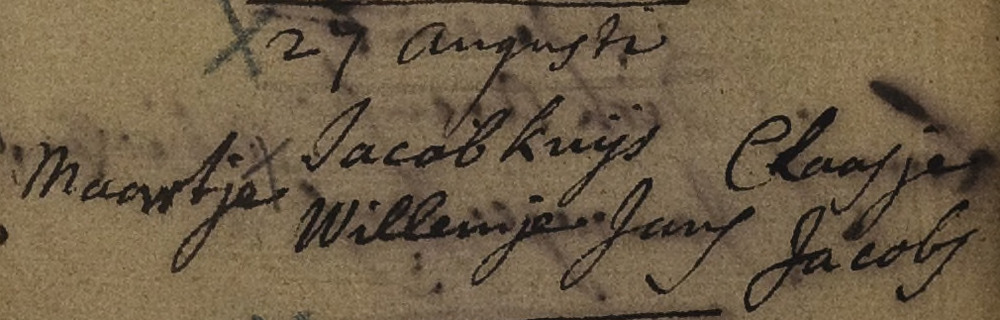 27 Augusti
Maartje Jacob kuijs Claasje
Willemje Jans Jacobs